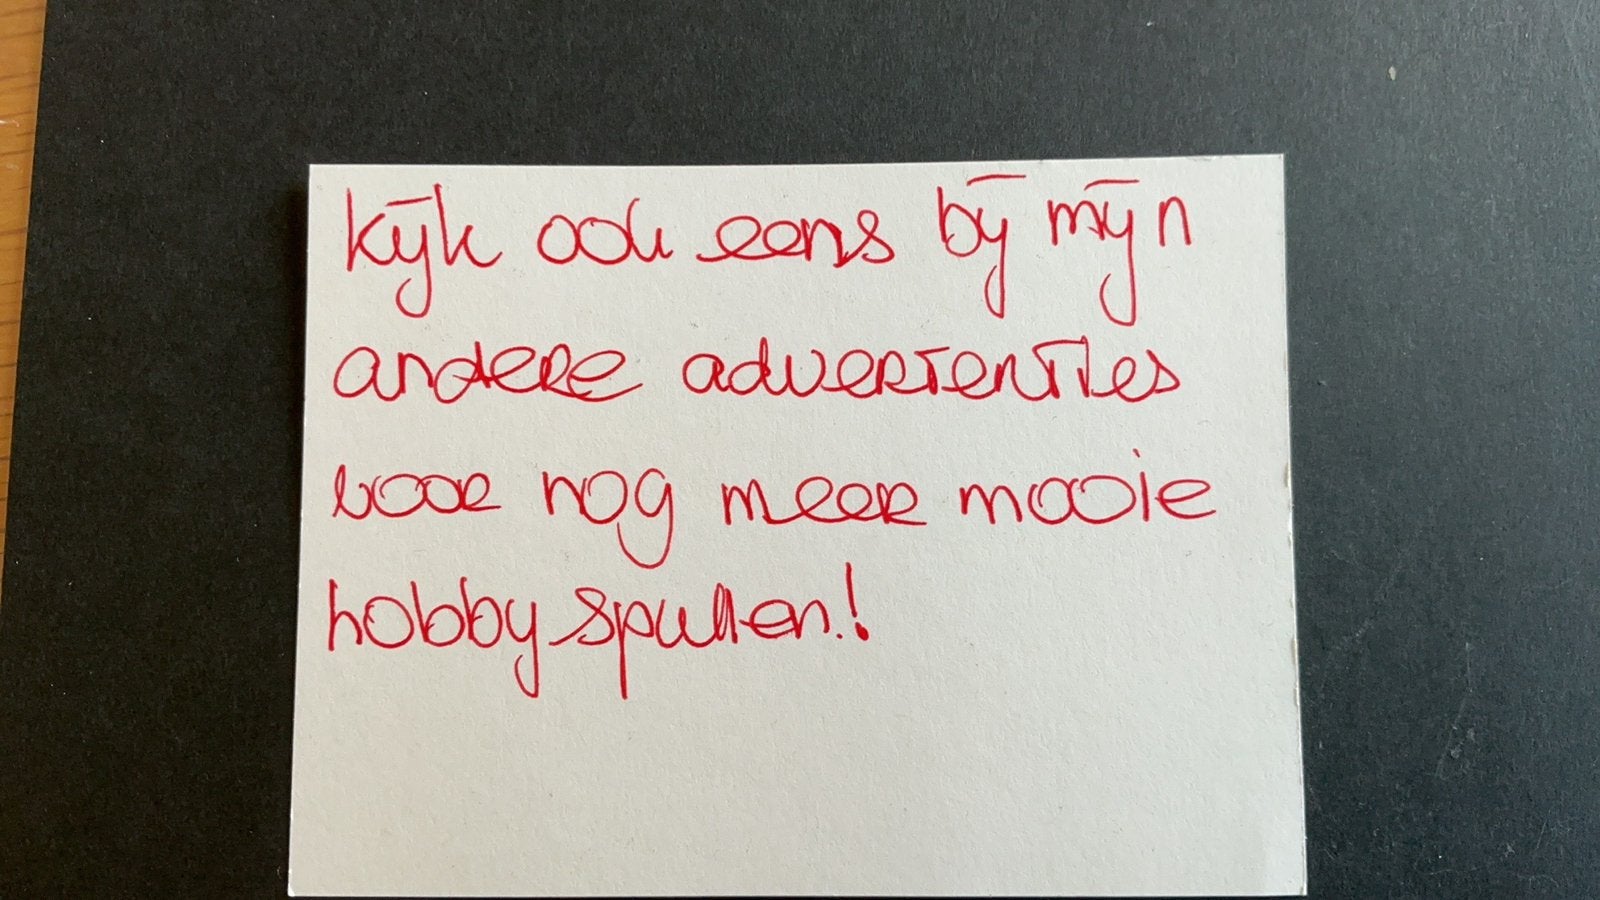 Kijk ook eens bij mijn
andere advertenties
voor nog meer mooie
hobby spullen.!